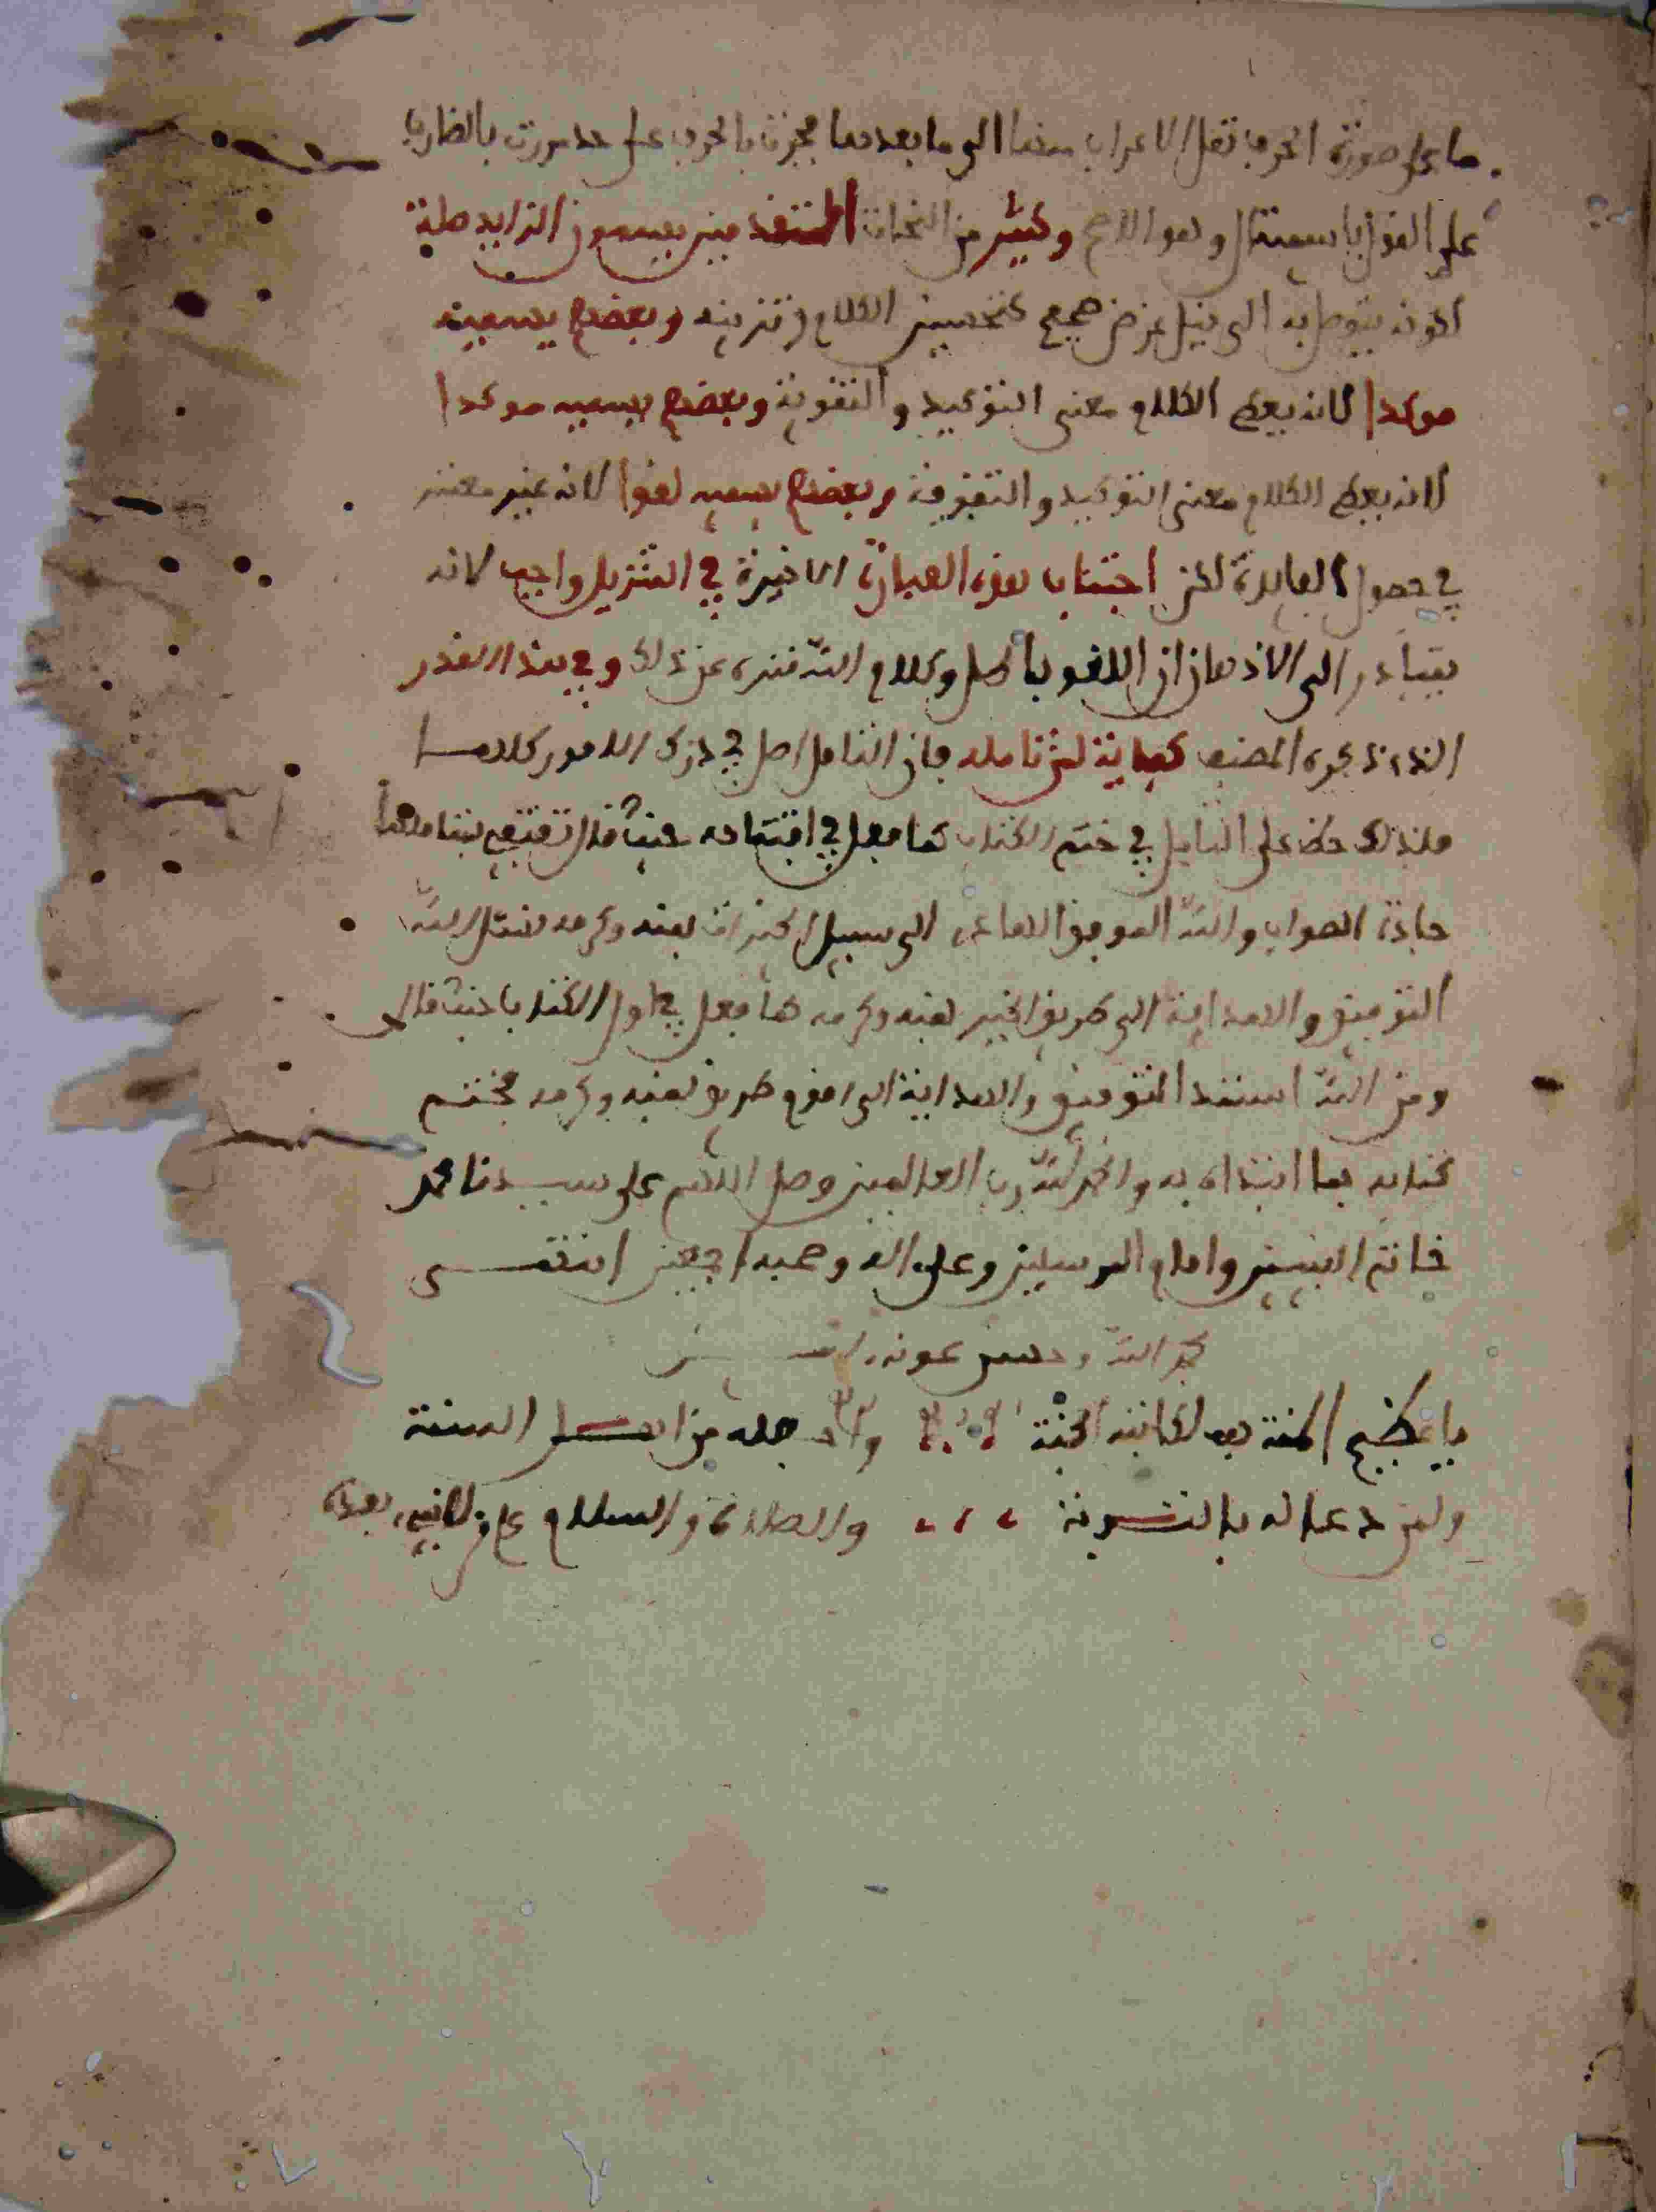 ما على صورة الحرف نقل الاعراب منها الى ما بعدها مجرت بالحرف على حد مررت بالضارب
على القول باسميتها ال وهو الاصح وكثير من النحات المتقدمين يسمون الزايد صلة
لكونه يتوصل به الى نيل غرض صحيح كتحسين الكلام وتزينه وبعضهم يسميه
موكدا لانه يعطى الكلام معنى التوكيد والتقوية وبعضهم يسميه موكدا
لانه يعطى الكلام معنى التوكيد والتقوية وبعضهم يسميه لغوا لانه غير معتبر
في حصول الفايدة لكن اجتناب هذه العبارة الاخيرة في التنزيل واجب لانه
يتبادر الى الاذهان ان اللغو باطل وكلام الله منزه عن ذلك وفي هذا القدر
الذى ذكره المصنف كفاية لمن تامله فان التامل اصل في درك الامور كلها
فلذلك حظ على التامل في ختم الكتاب كما فعل في افتتاحه حيث قال تقتفي بتاملها
جادة الصواب والله الموفق الهادى الى سبيل الخيرات بمنه وكرمه نسئل الله
التوفيق والهداية الى طريق الخير بمنه وكرمه كما فعل في اول الكتاب حيث قال
ومن الله استمد التوفيق والهداية الى اقوم طريق بمنه وكرمه فختم
كتابه بما ابتداه به والحمد لله رب العالمين وصل اللهم على سيدنا محمد
خاتم النبيين وامام المرسلين وعلى اله وصحبه اجمعين انتهى
بحمد الله وحسن عونه
يا عظيم المنة هب لكاتبه الجنة واجعله من اهل السنة
ولمن دعا له بالتوبة والصلاة والسلام على من لا نبي بعده